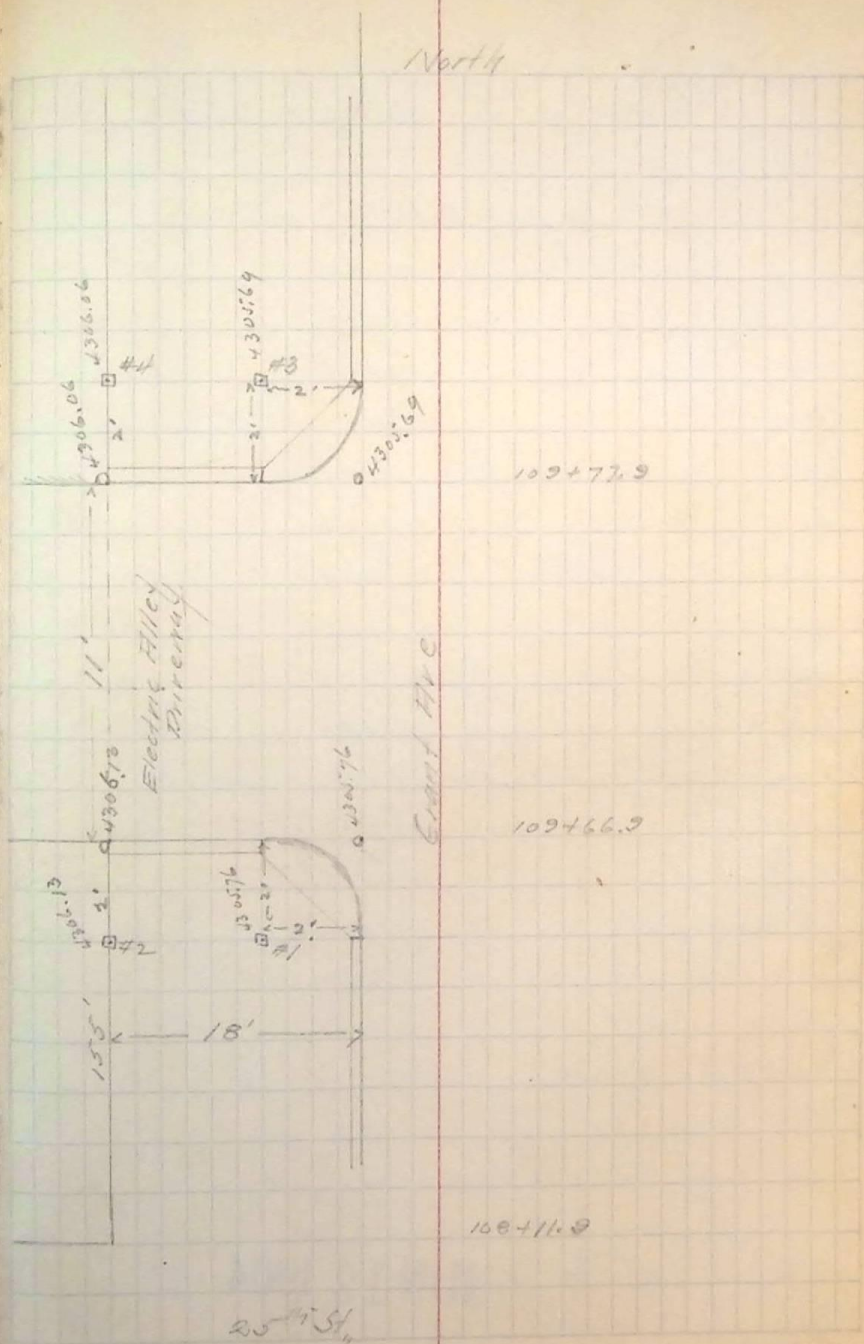 North
4306.06
#4
4305.69
#3
4306.06
2'
2'
2'
4305.69
109+77.9
11'
Electric Alley
Driveway
Grant Ave
4306.13
4305.76
109+66.9
4306.13
2'
#2
4305.76
2'
2'
#1
155'
18'
108+11.9
25th St.